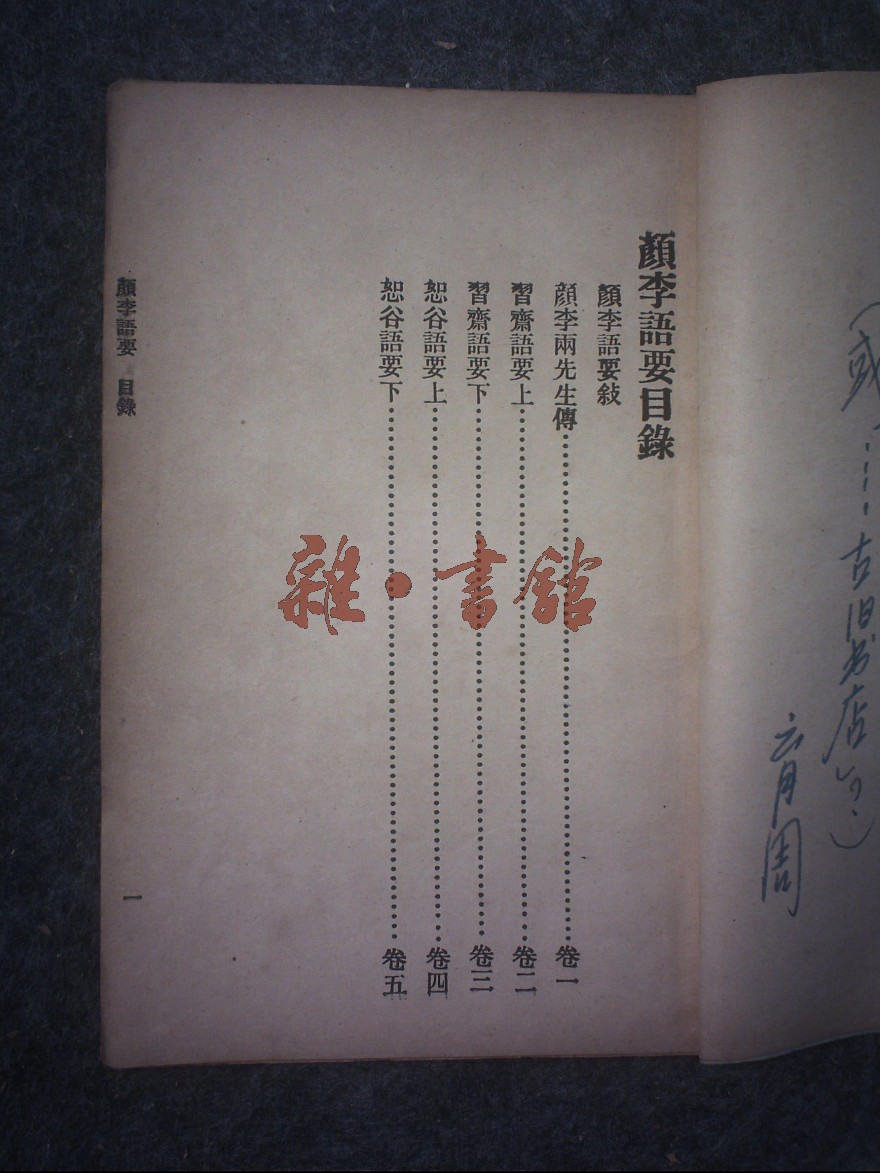 顏李語要目錄
顏李語要敍
顏李兩先生傳……………………卷一
習齋語要上……………………卷二
習齋語要下……………………卷三
恕谷語要上……………………卷四
恕谷語要下……………………卷五
顏李語要 目錄
一
雜·書館
古旧书店